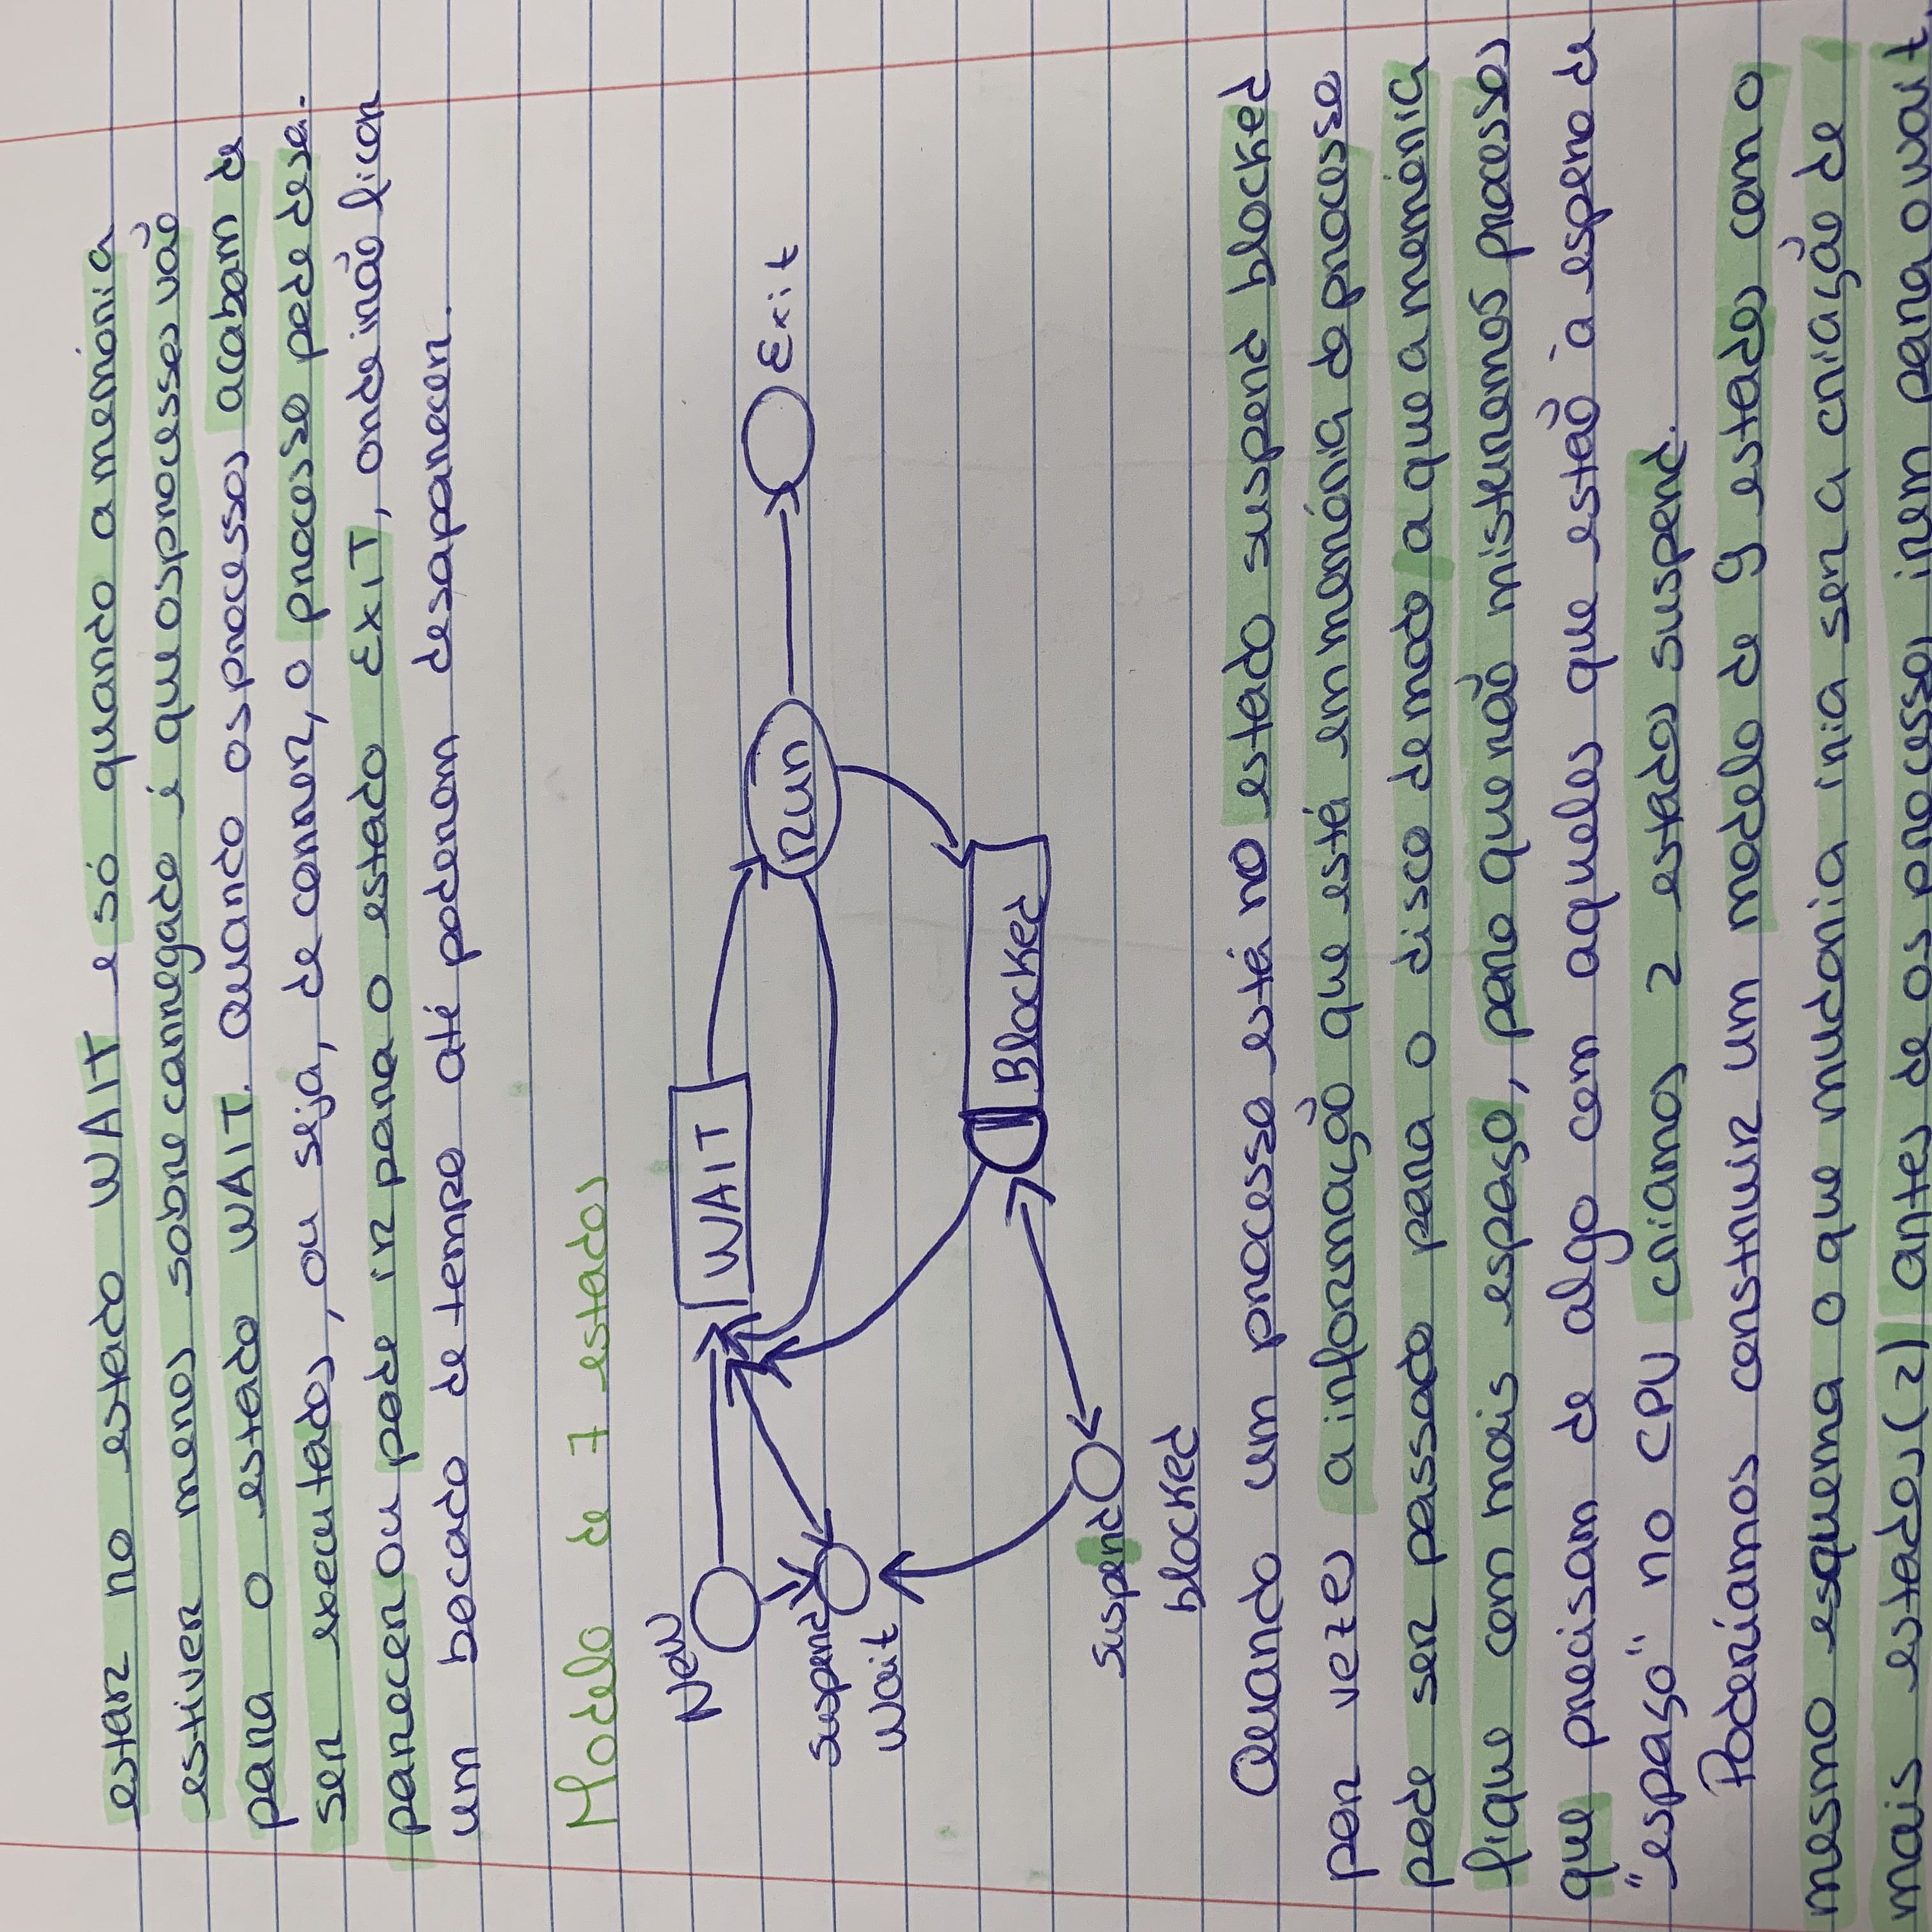 estar no estado WAIT e só quando a memória
estiver menos sobrecarregado é que os processos vão
para o estado WAIT. Quando os processos acabam de
ser executados, ou seja, de correr, o processo pode desa-
parecer ou pode ir para o estado EXIT, onde irão ficar
um bocado de tempo até poderem desaparecer.
Modelo de 7 estados
New
WAIT
Run
Exit
Suspend
Wait
Blocked
Suspend
blocked
Quando um processo está no estado suspend blocked
por vezes a informação que está em memória do processo
pode ser passado para o disco de modo a que a memória
fique com mais espaço, para que não misturemos processos
que precisam de algo com aqueles que estão à espera de
"espaço" no CPU criamos 2 estados suspend.
Poderíamos construir um modelo de 9 estados com o
mesmo esquema o que mudaria iria ser a criação de
mais estados (2) antes de os processos irem para o wait